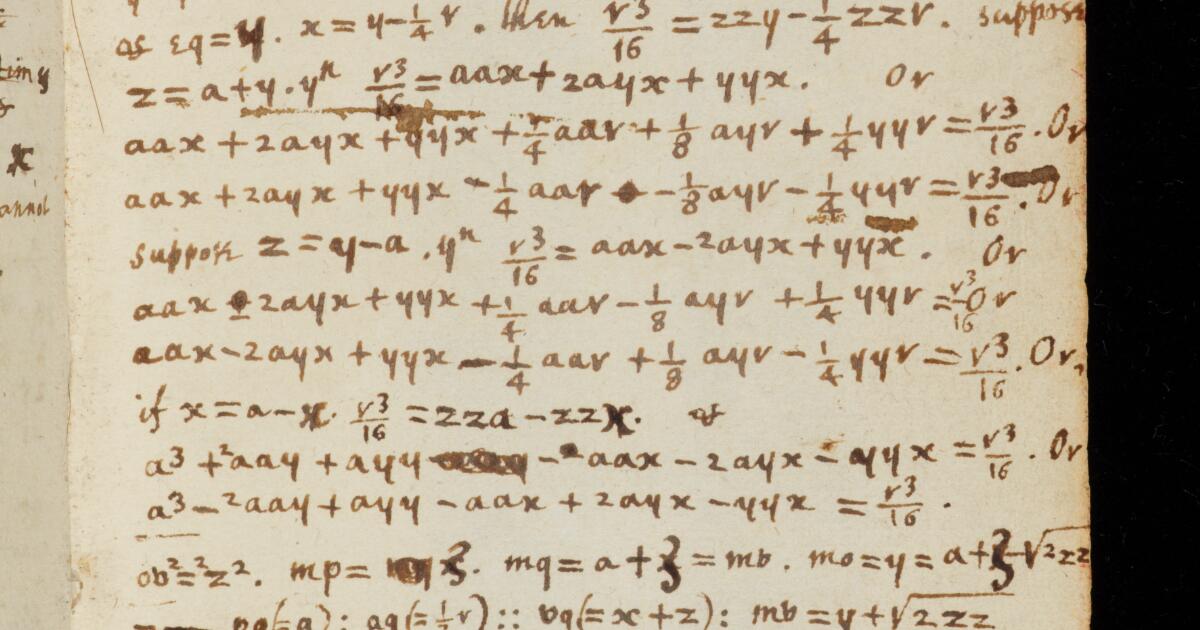 as Eq=y. x=y-1/4 r. then r3/16 = zzy - 1/4 zzr. suppose
z=a+y. yn r3/16 = aax + 2ayx + yyx. Or
aax + 2ayx + yyx + r/4 aar + 1/8 ayr + 1/4 yyr = r3/16. Or
aax + 2ayx + yyx - 1/4 aar - 1/8 ayr - 1/4 yyr = r3/16. Or
suppose z=y-a. yn r3/16 = aax - 2ayx + yyx. Or
aax - 2ayx + yyx + 1/4 aar - 1/8 ayr + 1/4 yyr = r3/16 Or
aax - 2ayx + yyx - 1/4 aar + 1/8 ayr - 1/4 yyr = r3/16. Or,
if x=a-x. r3/16 = zza - zzx. or
a3 + 2aay + ayy - aax - 2ayx - yyx = r3/16. Or
a3 - 2aay + ayy - aax + 2ayx - yyx = r3/16.
ob2=2z2. mp= ξ. mq = a + ξ = mb. mo=y = a+ξ-√2zz
pq(=a): aq(=1/2 r):: bq(=x+z): mb = y + √2zz